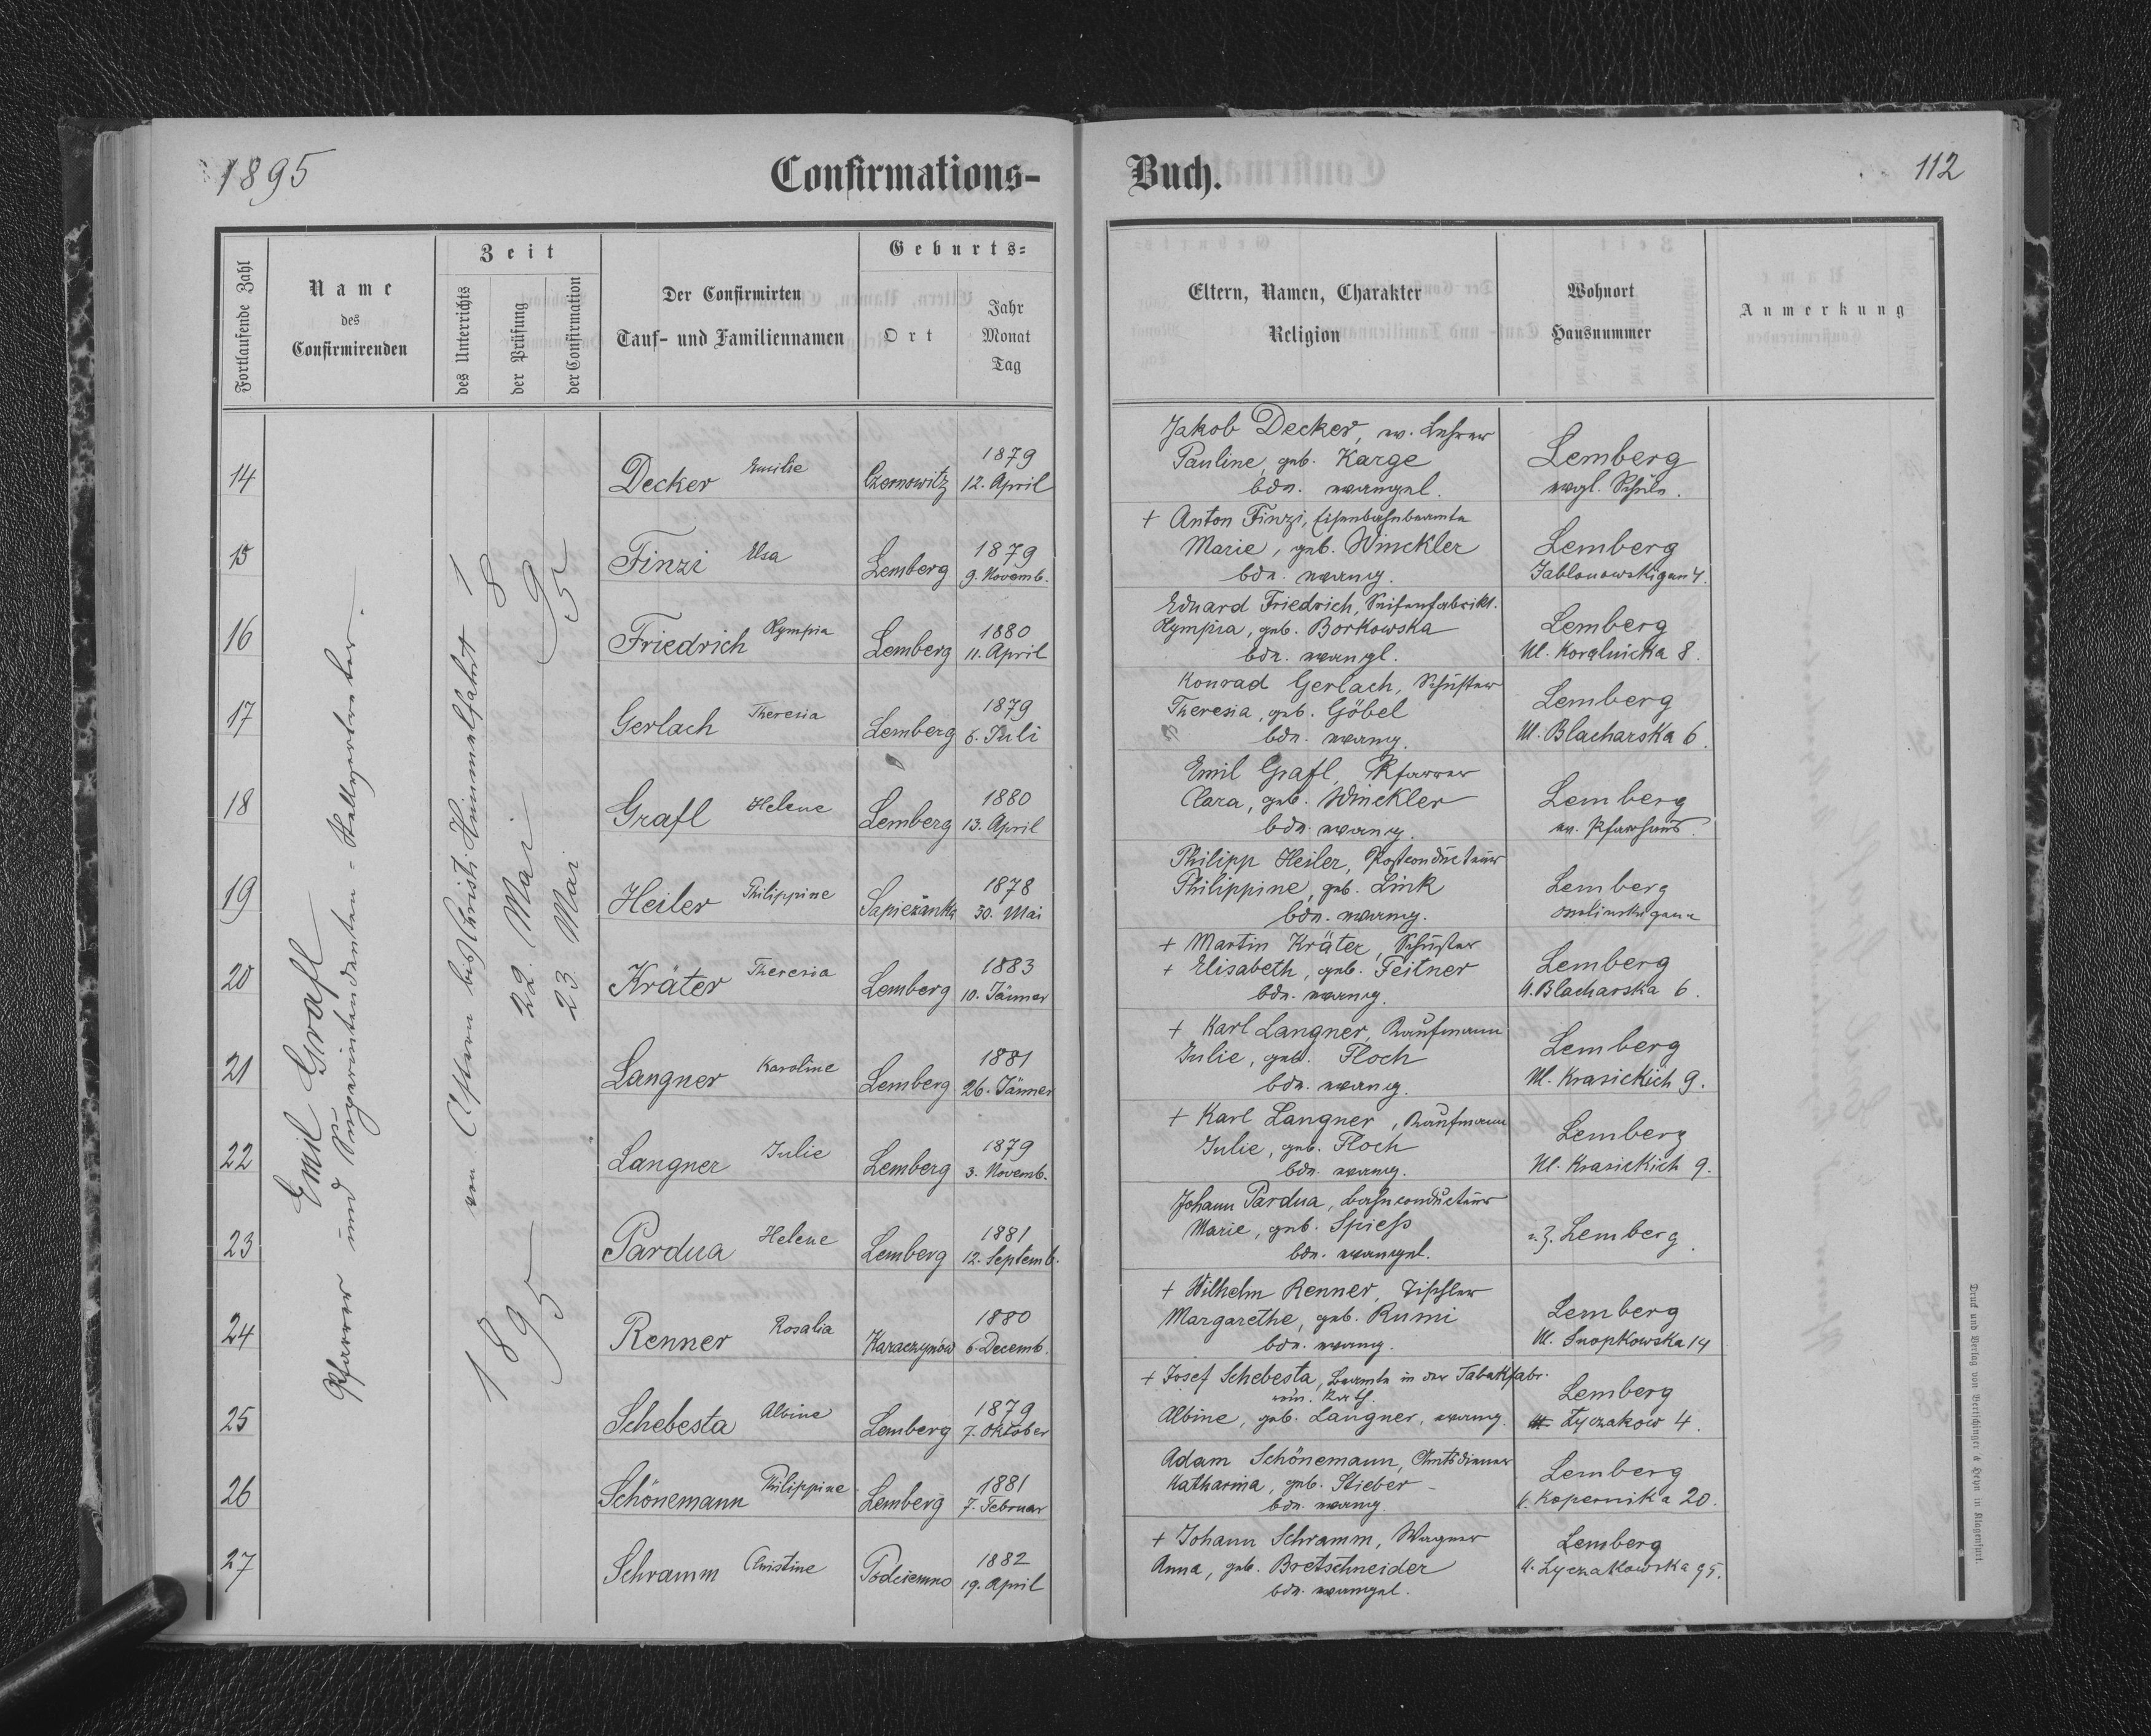 1895
Confirmations-
Buch.
112
Fortlaufende Zahl
Name
des
Confirmirenden
Zeit
des Unterrichts
der Prüfung
der Confirmation
Der Confirmirten
Tauf- und Familiennamen
Geburts-
Ort
Jahr
Monat
Tag
Eltern, Namen, Charakter
Religion
Wohnort
Hausnummer
Anmerkung
Emil Grafl
Pfarrer und Superintendenten-Stellvertreter.
von Ostern bis Christi Himmelfahrt 1895
22. Mai
23. Mai
1895
14
Decker Emilie
Czernowitz
1879
12. April
Jakob Decker, ev. Lehrer
Pauline, geb. Karge
bde. evangel.
Lemberg
evgl. Schule.
15
Finzi Elsa
Lemberg
1879
9. Novemb.
+ Anton Finzi, Eisenbahnbeamte
Marie, geb. Winckler
bde. evang.
Lemberg
Jablonowskigasse 4.
16
Friedrich Olympia
Lemberg
1880
11. April
Eduard Friedrich, Seifenfabrikt.
Olympia, geb. Borkowska
bde. evangl.
Lemberg
Ul. Koralnicka 8.
17
Gerlach Theresia
Lemberg
1879
6. Juli
Konrad Gerlach, Schuster
Theresia, geb. Göbel
bde. evang.
Lemberg
Ul. Blacharska 6.
18
Grafl Helene
Lemberg
1880
13. April
Emil Grafl, Pfarrer
Clara, geb. Winckler
bde. evang.
Lemberg
ev. Pfarrhaus.
19
Heiler Philippine
Sapieżanka
1878
30. Mai
Philipp Heiler, Postconducteur
Philippine, geb. Link
bde. evang.
Lemberg
20
Kräter Theresia
Lemberg
1883
10. Jänner
+ Martin Kräter, Schuster
+ Elisabeth, geb. Feitner
bde. evang.
Lemberg
U. Blacharska 6.
21
Langner Karoline
Lemberg
1881
26. Jänner
+ Karl Langner, Kaufmann
Julie, geb. Floch
bde. evang.
Lemberg
Ul. Krasickich 9.
22
Langner Julie
Lemberg
1879
3. Novemb.
+ Karl Langner, Kaufmann
Julie, geb. Floch
bde. evang.
Lemberg
Ul. Krasickich 9.
23
Pardua Helene
Lemberg
1881
12. Septemb.
Johann Pardua, Bahnconducteur
Marie, geb. Spieß
bde. evangel.
z. Z. Lemberg.
24
Renner Rosalia
Karaczynów
1880
6. Decemb.
+ Wilhelm Renner, Tischler
Margarethe, geb. Rumi
bde. evang.
Lemberg
Ul. Snopkowska 14
25
Schebesta Albine
Lemberg
1879
7. Oktober
+ Josef Schebesta, Beamte in der Tabakfabr.
röm. kath.
Albine, geb. Langner, evang.
Lemberg
Łyczakow 4.
26
Schönemann Philippine
Lemberg
1881
7. Februar
Adam Schönemann, Amtsdiener
Katharina, geb. Stieber
bde. evang.
Lemberg
Kopernika 20.
27
Schramm Christine
Podciemno
1882
19. April
+ Johann Schramm, Wagner
Anna, geb. Bretschneider
bde. evangel.
Lemberg
U. Lyczakowska 95.
Druck und Verlag von Bertschinger & Heyn in Klagenfurt.